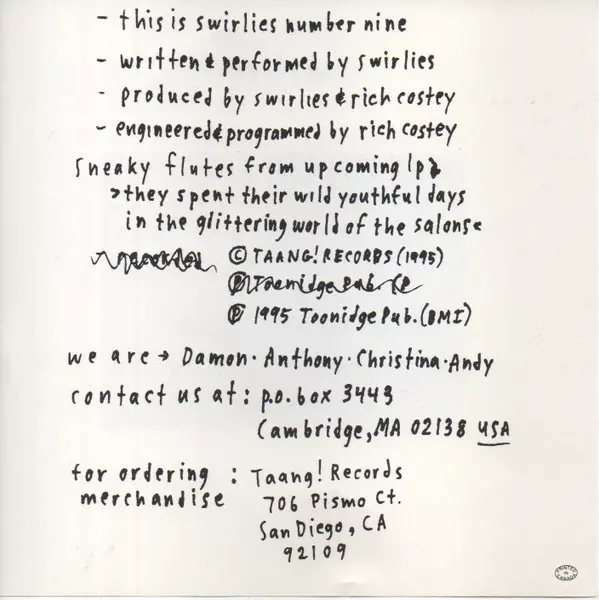 - this is swirlies number nine
- written & performed by swirlies
- produced by swirlies & rich costey
- engineered & programmed by rich costey
sneaky flutes from upcoming lp
> they spent their wild youthful days
in the glittering world of the salons <
© TAANG! RECORDS (1995)
Ⓟ Toonidge Pub. (
Ⓟ 1995 Toonidge Pub. (BMI)
we are → Damon · Anthony · Christina · Andy
contact us at: p.o. box 3443
Cambridge, MA 02138 USA
for ordering : Taang! Records
merchandise 706 Pismo Ct.
San Diego, CA
92109
PRINTED IN CANADA